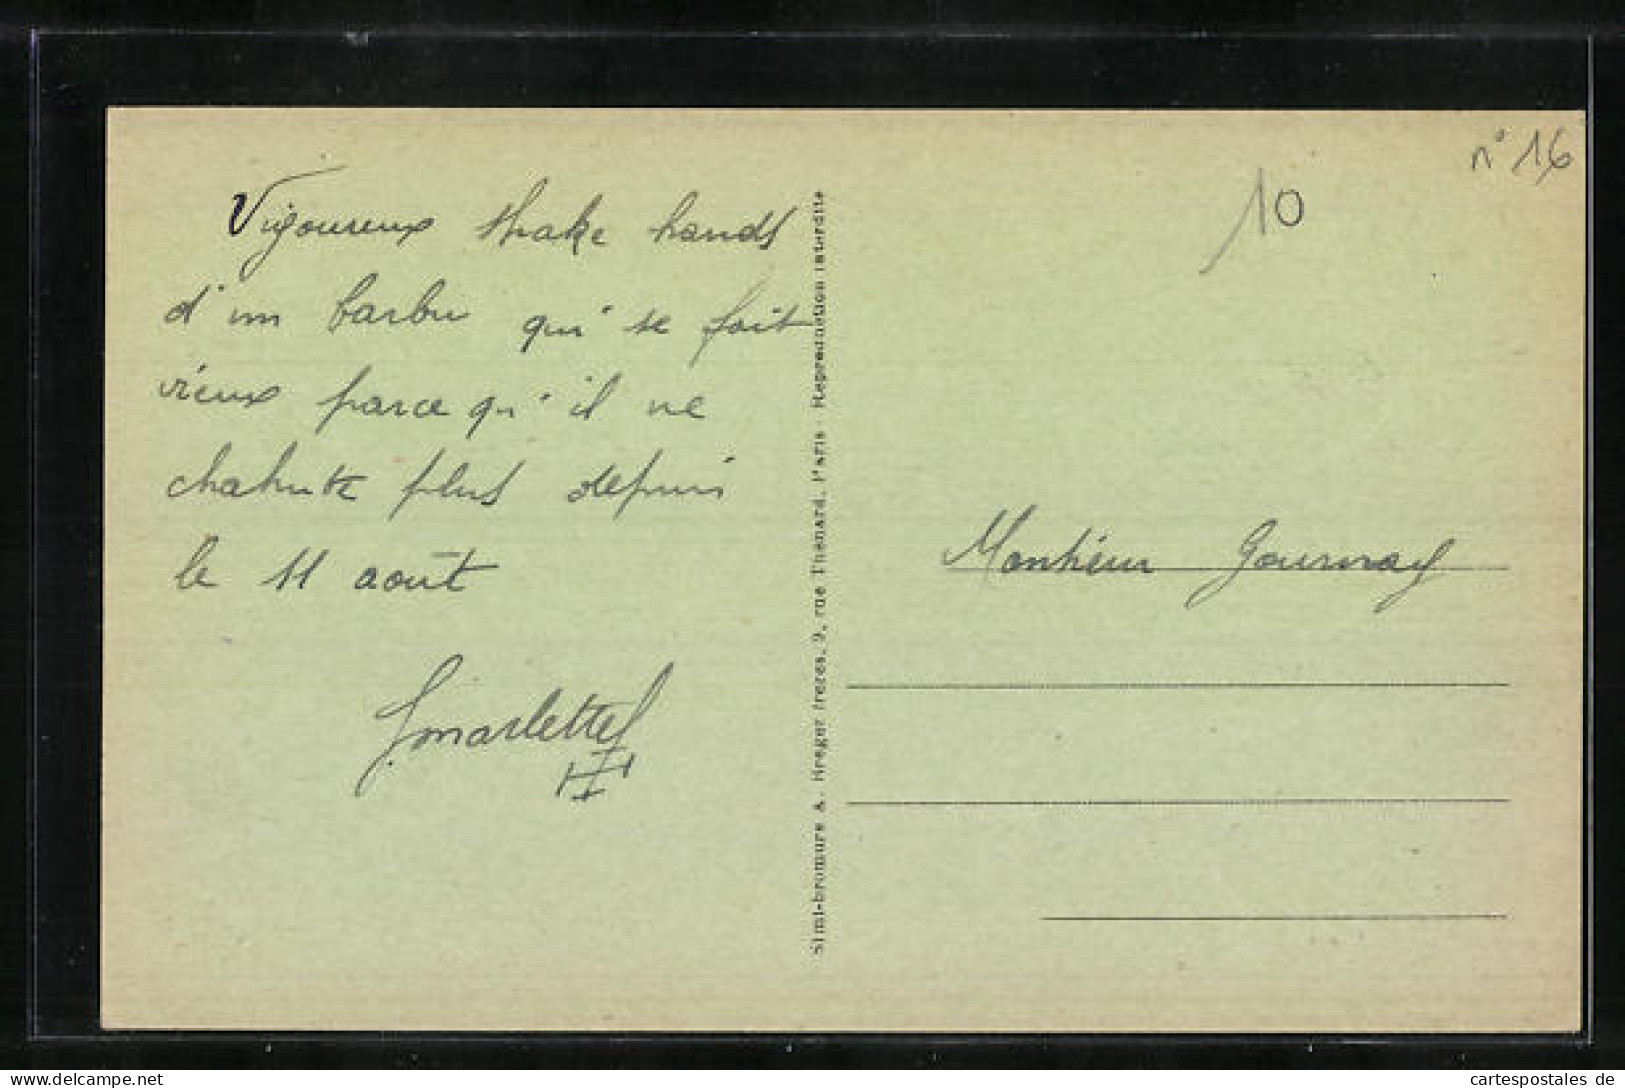 Vigoureux shake hands
d'un barbu qui se fait
vieux parce qu'il ne
chahute plus depuis
le 11 août
Simi-bromure A. Breger frères, 9, rue Thénard, Paris - Reproduction interdite
n° 16
10
Monsieur Gournay
Les cartes postales sur Delcampe.net
cartespostales de